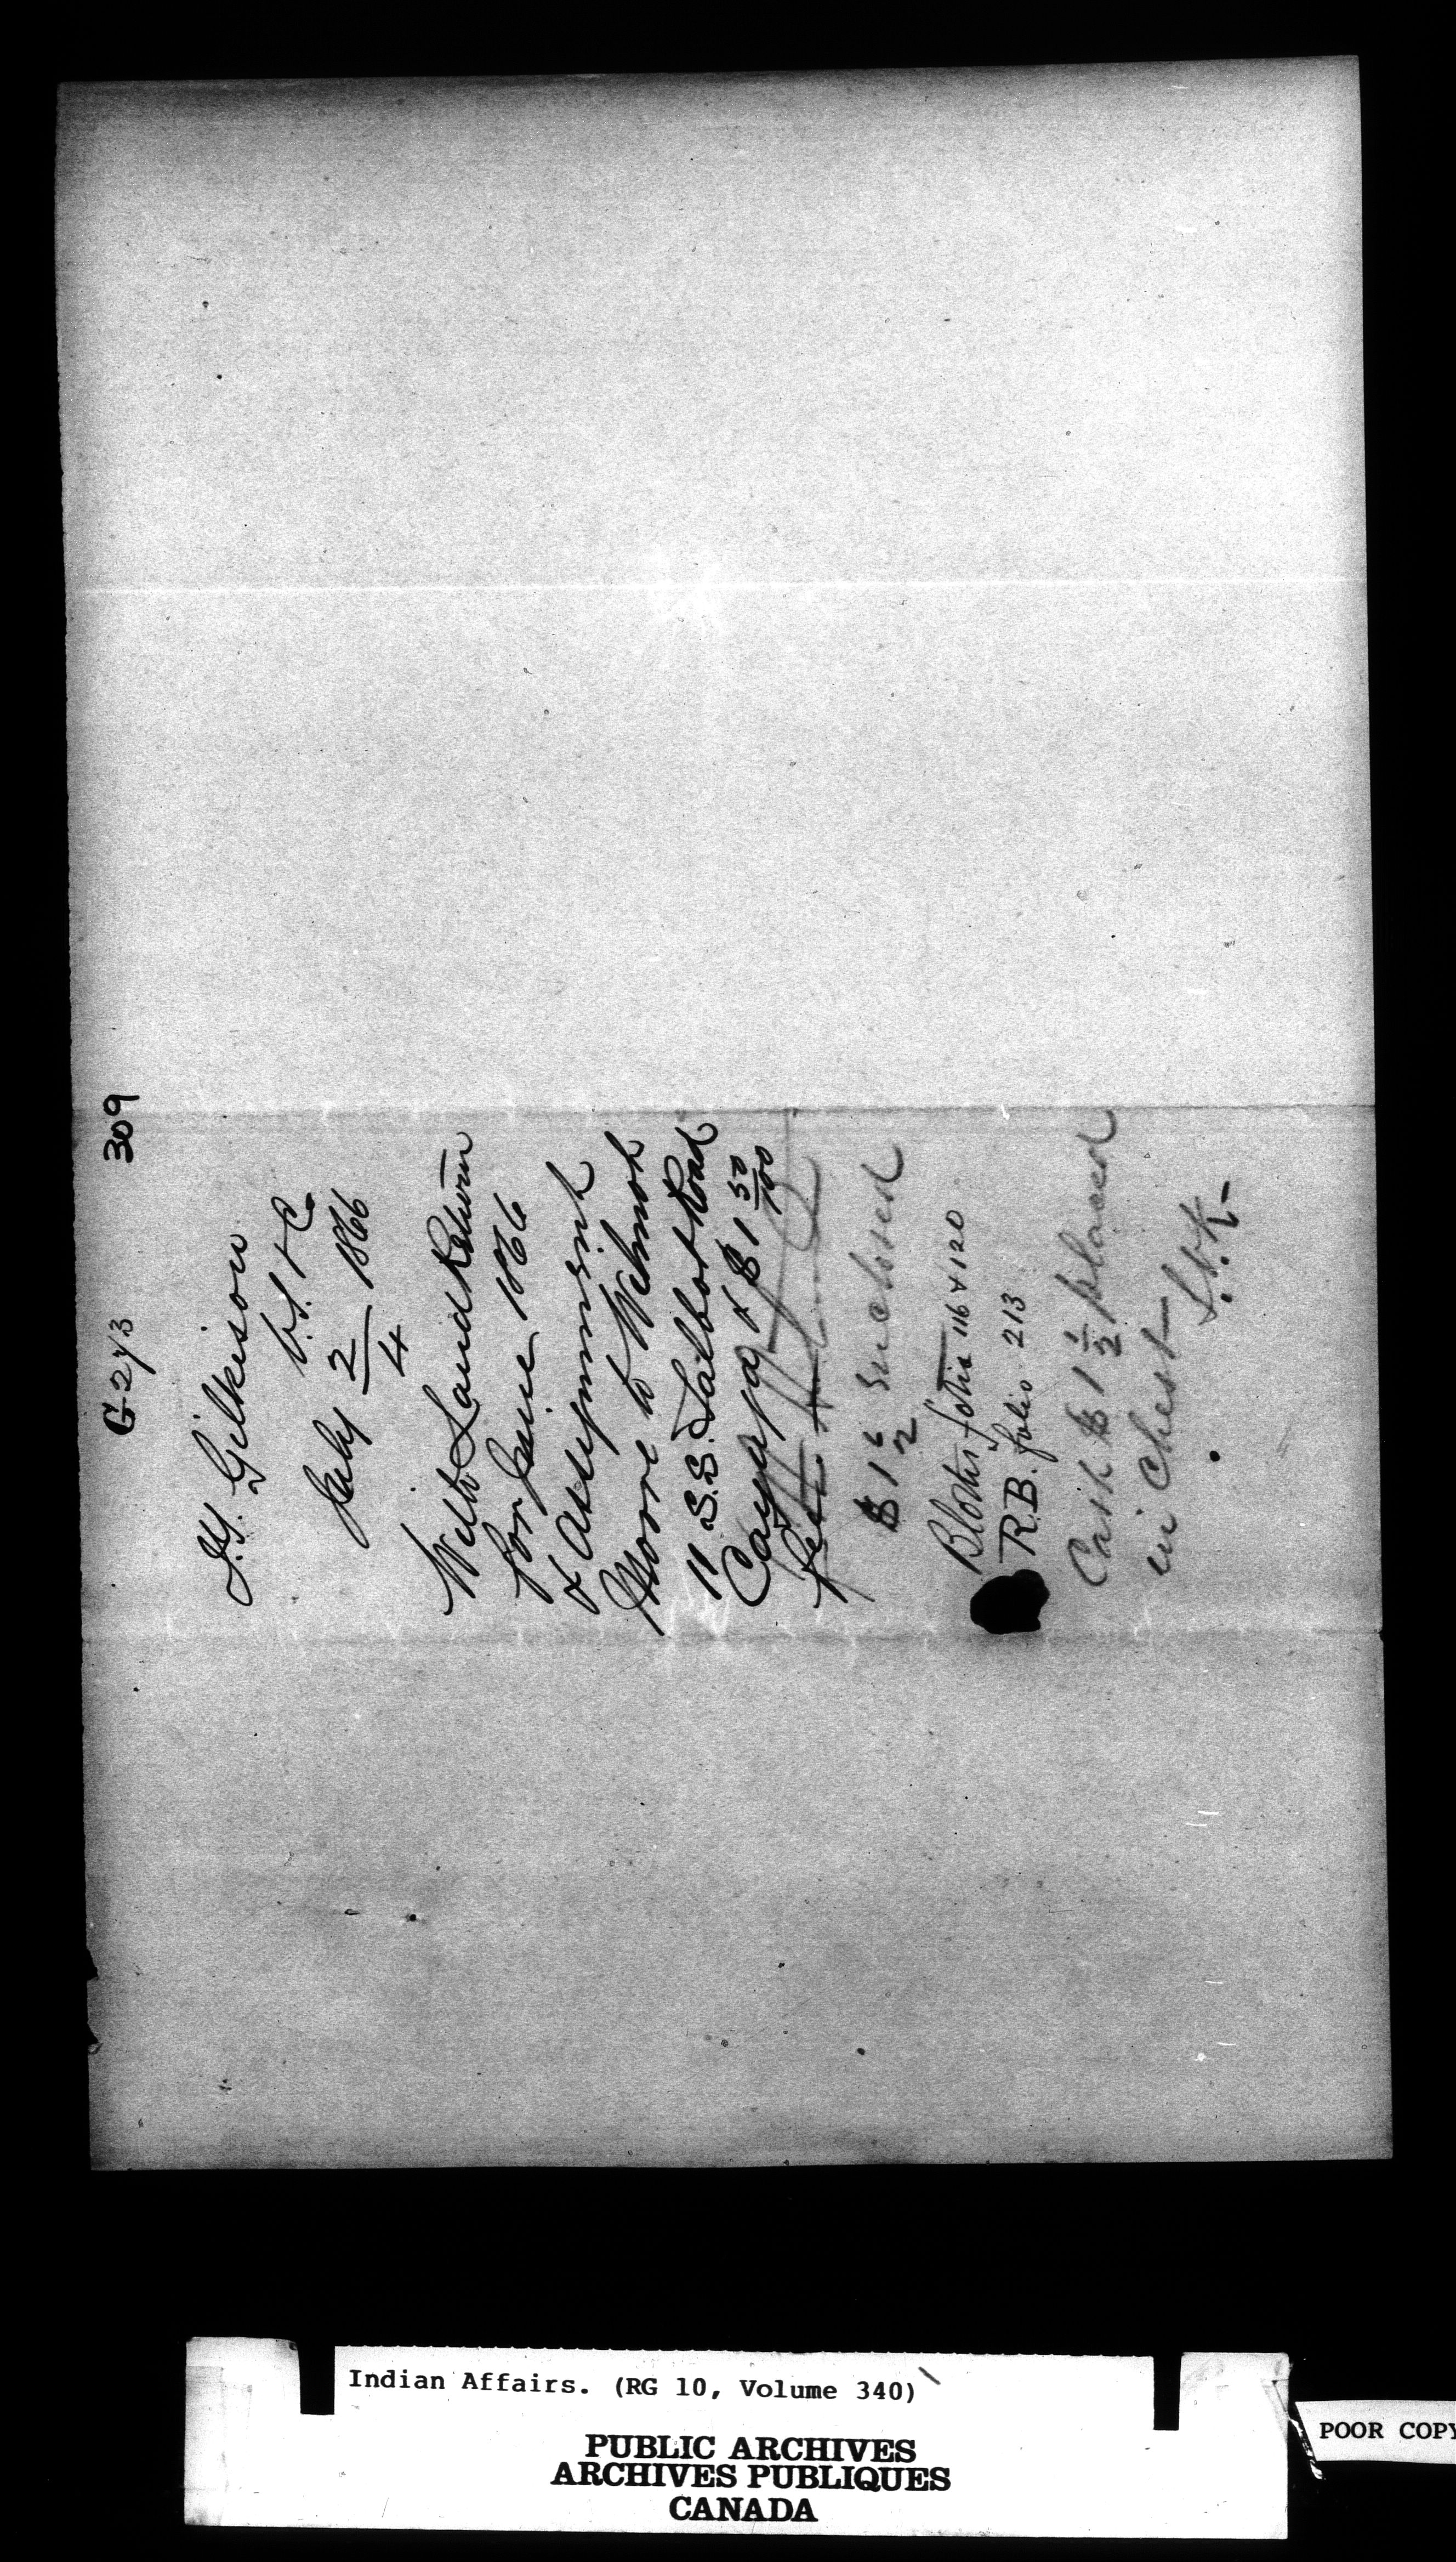 309
G 273
J.T. Gilkison
V.S. & C
July 2/4 1866
With Land Return
for June 1866
& Assignment
Moore to Wilmot
11 S.S. Talbot Road
Cayuga & $1 50/100
fee
$1 1/2 enclosed
Blotter folio 116 & 120
R.B. folio 213
Cash $1 1/2 placed
in Chest
Indian Affairs. (RG 10, Volume 340)
PUBLIC ARCHIVES
ARCHIVES PUBLIQUES
CANADA
POOR COPY